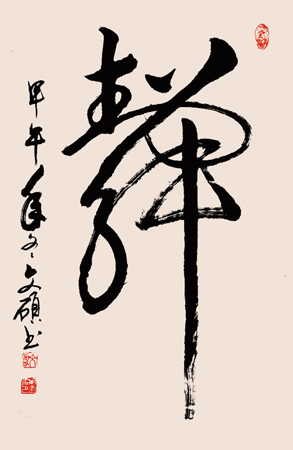 静
甲午年冬文硕书